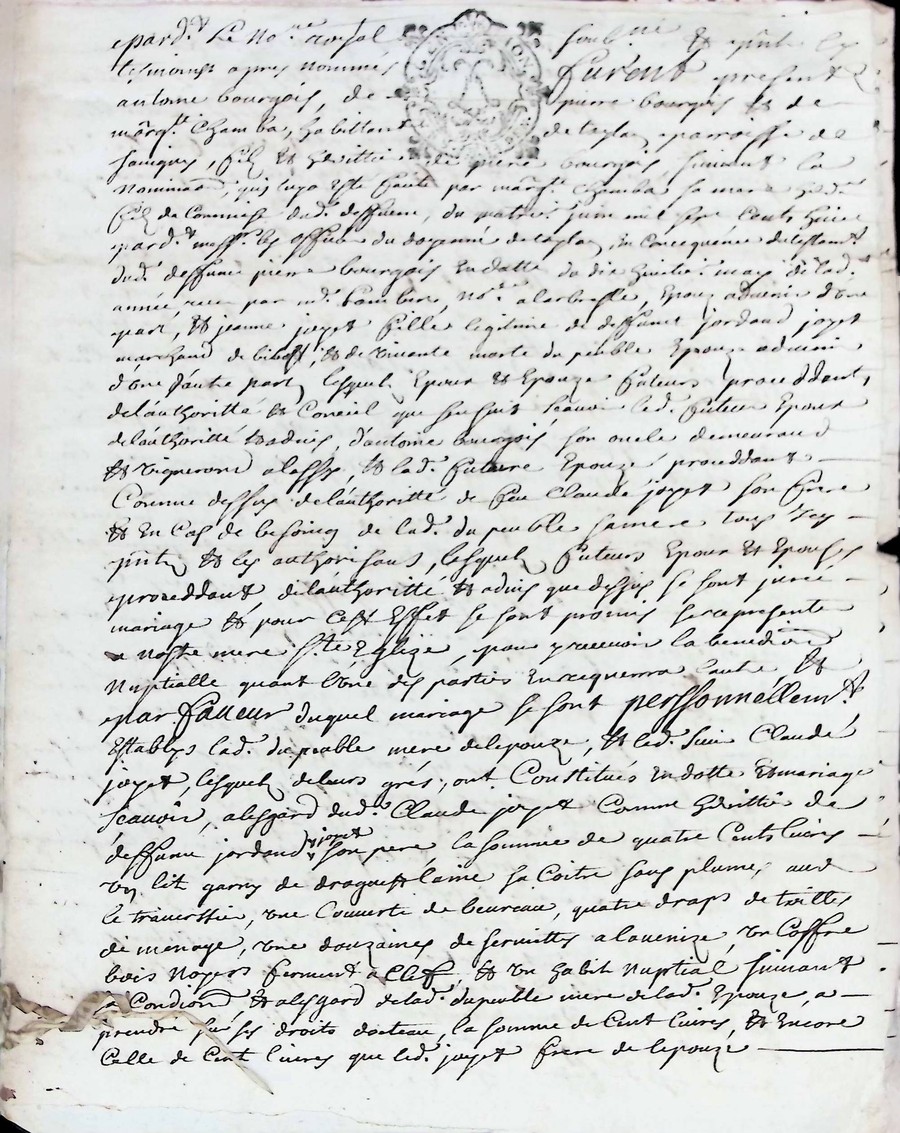 pard.t Le no.re royal soub.né & p̃nts les
tesmoins apres nommés furent present
antoine bourgois, de pierre bourgois & de
marg.te Chamba, habittant de laplas parroisse de
savigny, filz et heritier de pierre bourgois, suivant la
nomina͠on, quy luy a este faite par marg.te chamba sa mere
dud. deffunt, du quatre juin mil sept cents
pard.t mess.rs les officiers du doyenné de en concequence du testam.t
dud. deffunt pierre bourgois en datte du dix huitie. mars de lad.
année, receu par m.e no.re a larbresle, Epoux advenir d'une
part, & jeanne joyet fille legitime de deffunct jordand joyet
marchand de & de vivante du peuble Epouze advenir
d'une d'autre part, lesquels Epoux & Epouze futeurs proceddants,
de l'authoritté & Conseil que sensuit scavoir led. futeur Epoux
de l'authoritté & advis, d'antoine bourgois son oncle demeurand
& vigneron a & lad. future Epouze proceddant
Comme dessus de l'authoritté de Claude joyet son frere
& en cas de besoing de lad. du peuble sa mere tous icy
p̃nts & les authorisants, lesquels futeurs Epoux et Epouses
proceddant de l'authoritté & advis que dessus se sont jurés
mariage & pour cest effet se sont promis se representer
a nostre mere S.te Eglize, pour y recevoir la benedi͠on
nuptialle quant l'une des parties en requerra l'autre &
par faveur duquel mariage se sont perssonnellem.t
Establys lad. du peuble mere de lepouze, & led. Claude
joyet, lesquels de leurs grés, ont Constitués en dotte & mariage
scavoir, a lesgard dud. Claude joyet Comme heritier de
deffunt jordand joyet son pere, la somme de quatre Cents livres
un lit garny de laine sa Coitre sans plume, avec
le traverssier, une Couverte de bureau, quatre draps de toilles
de menage, une douzaines de serviettes a la venize, un Coffre
bois noyers fermant a Clef, & un habit nuptial suivant
sa Condi͠on, & a lesgard de lad. du peuble mere de lad. Epouze, a
prendre sur ses droits dotteau, la somme de Cent livres, & encore
Celle de Cent livres que led. joyet frere de lepouze